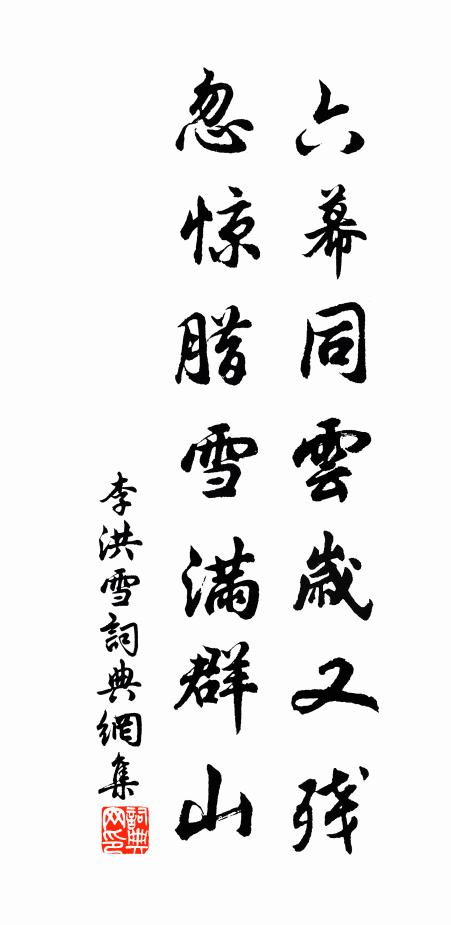 六幕同雲歲又残
忽惊腊雪滿群山
李洪雪詞典網集
詞典网印